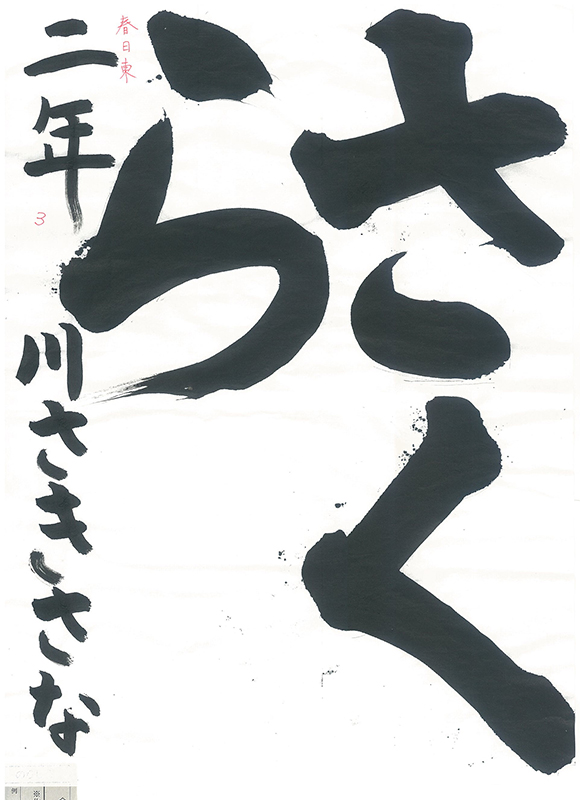 さくら
二年 川さきさな
春日東
3
例
※